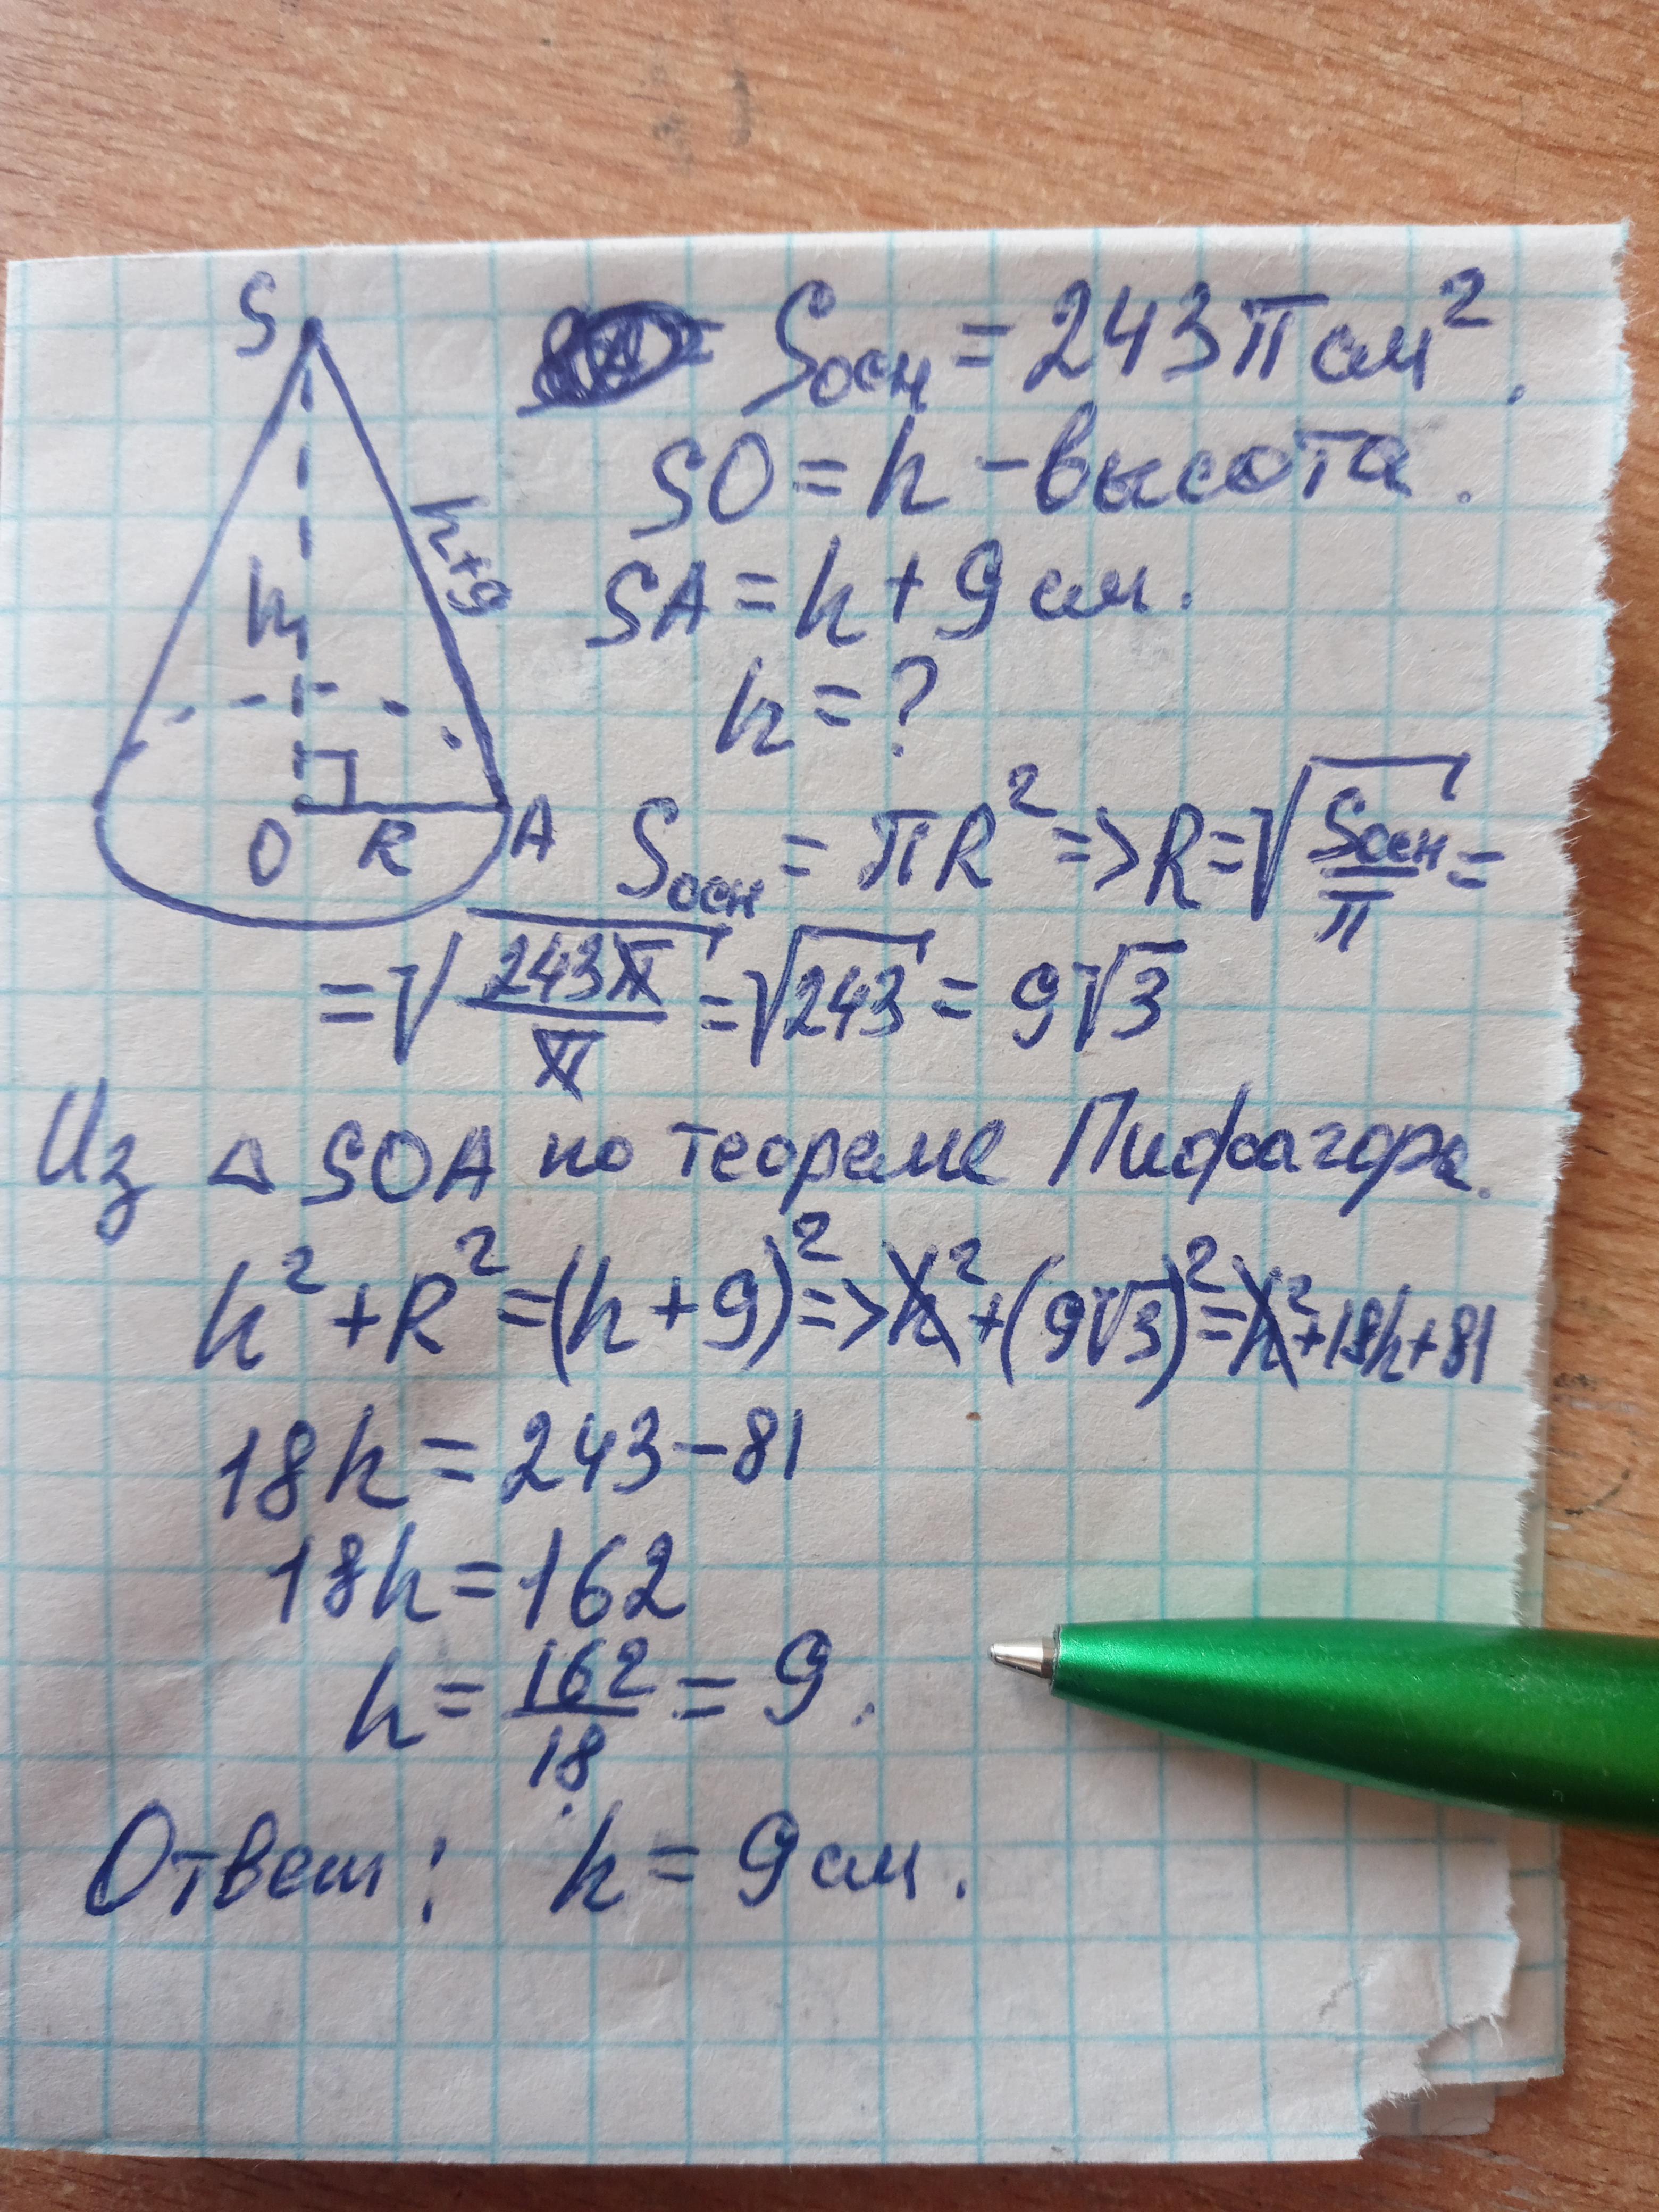 S
Sосн = 243π см².
SO = h - высота.
h+9
SA = h + 9 см.
h
h = ?
O R A
Sосн = πR² => R = √(Sосн/π) =
= √(243π/π) = √243 = 9√3
Из △ SOA по теореме Пифагора.
h² + R² = (h + 9)² => h² + (9√3)² = h² + 18h + 81
18h = 243 - 81
18h = 162
h = 162/18 = 9.
Ответ: h = 9 см.